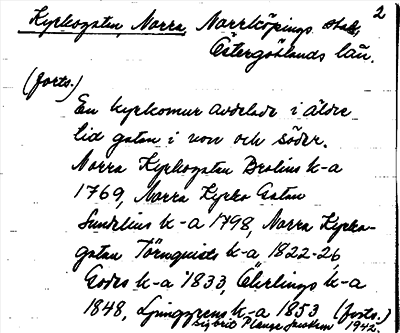 2
Kyrkogatan, Norra, Norrköpings stad,
Östergötlands län.
(forts.)
En kyrkomur avdelade i äldre
tid gatan i norr och söder.
Norra Kyrkogatan Brolins k-a
1769, Norra Kyrko Gatan
Sundelius k-a 1798, Norra Kyrko-
gatan Törnquists k-a 1822-26,
Godes k-a 1833, Öhrlings k-a
1848, Ljunggrens k-a 1853 (forts.)
Sigbrit Plænge Jacobson 1942.